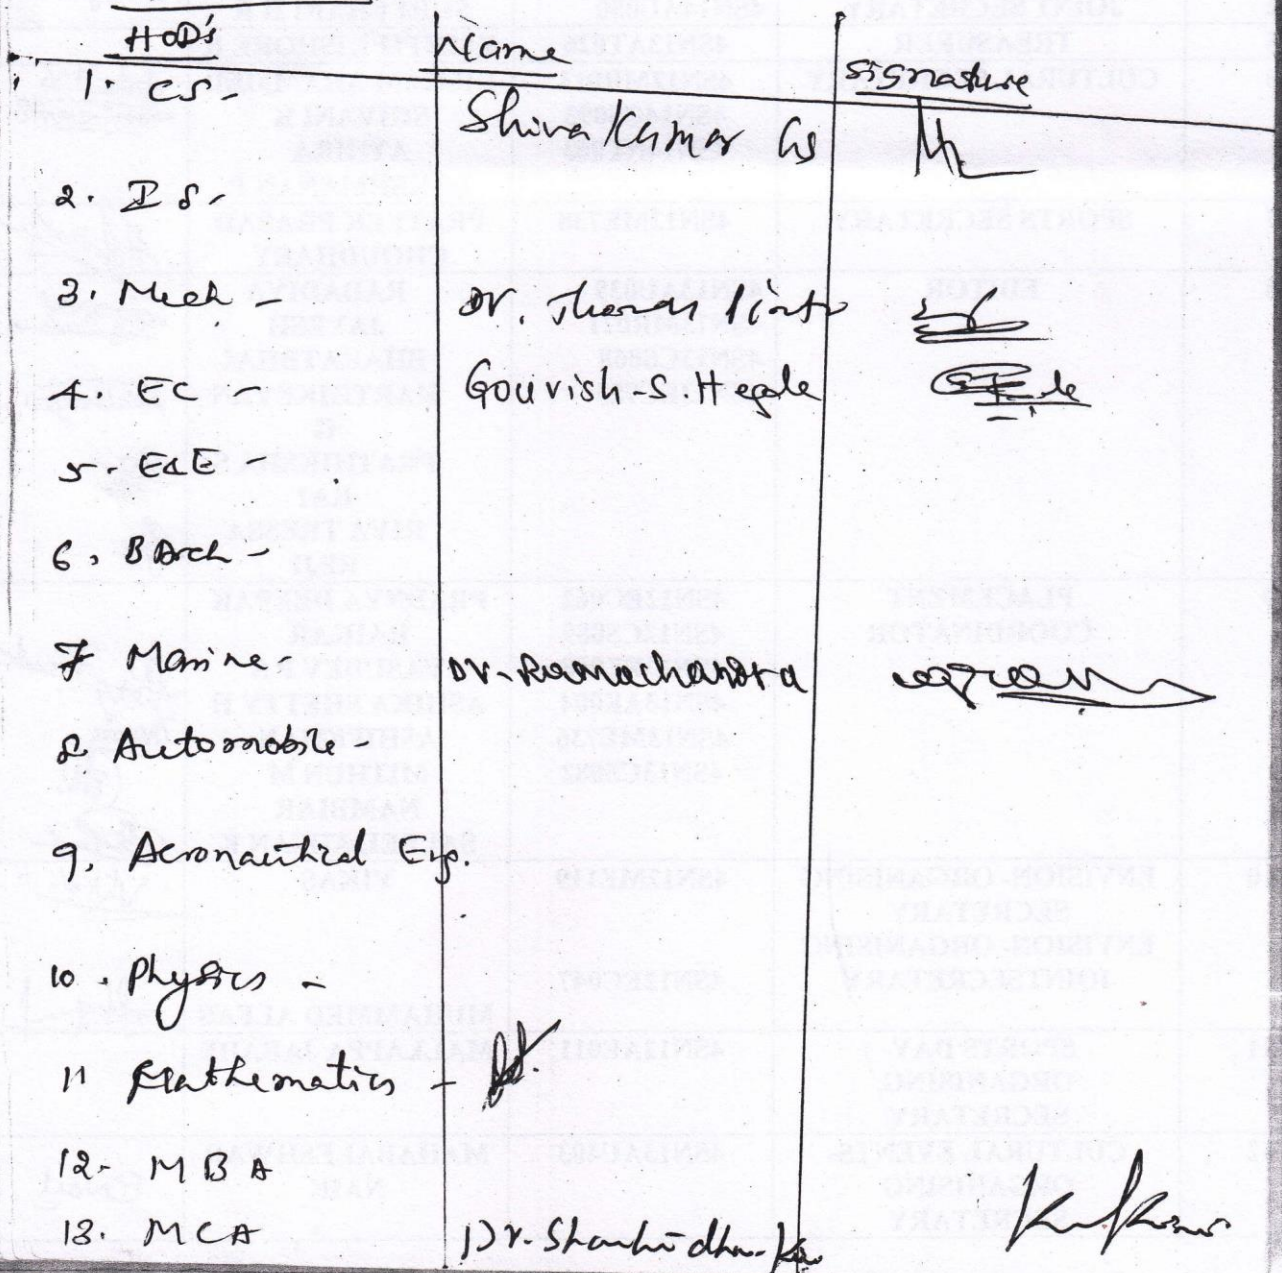 HOD's Name Signature
1. CS- Shiva Kumar GS
2. IS-
3. Mech - Dr. Thomas Pinto
4. EC - Gourish-S Hegde
5. E&E -
6. B Arch -
7 Marine - Dr. Ramachandra
8. Automobile -
9. Aeronautical Eng.
10. Physics -
11 Mathematics -
12. MBA
13. MCA Dr.